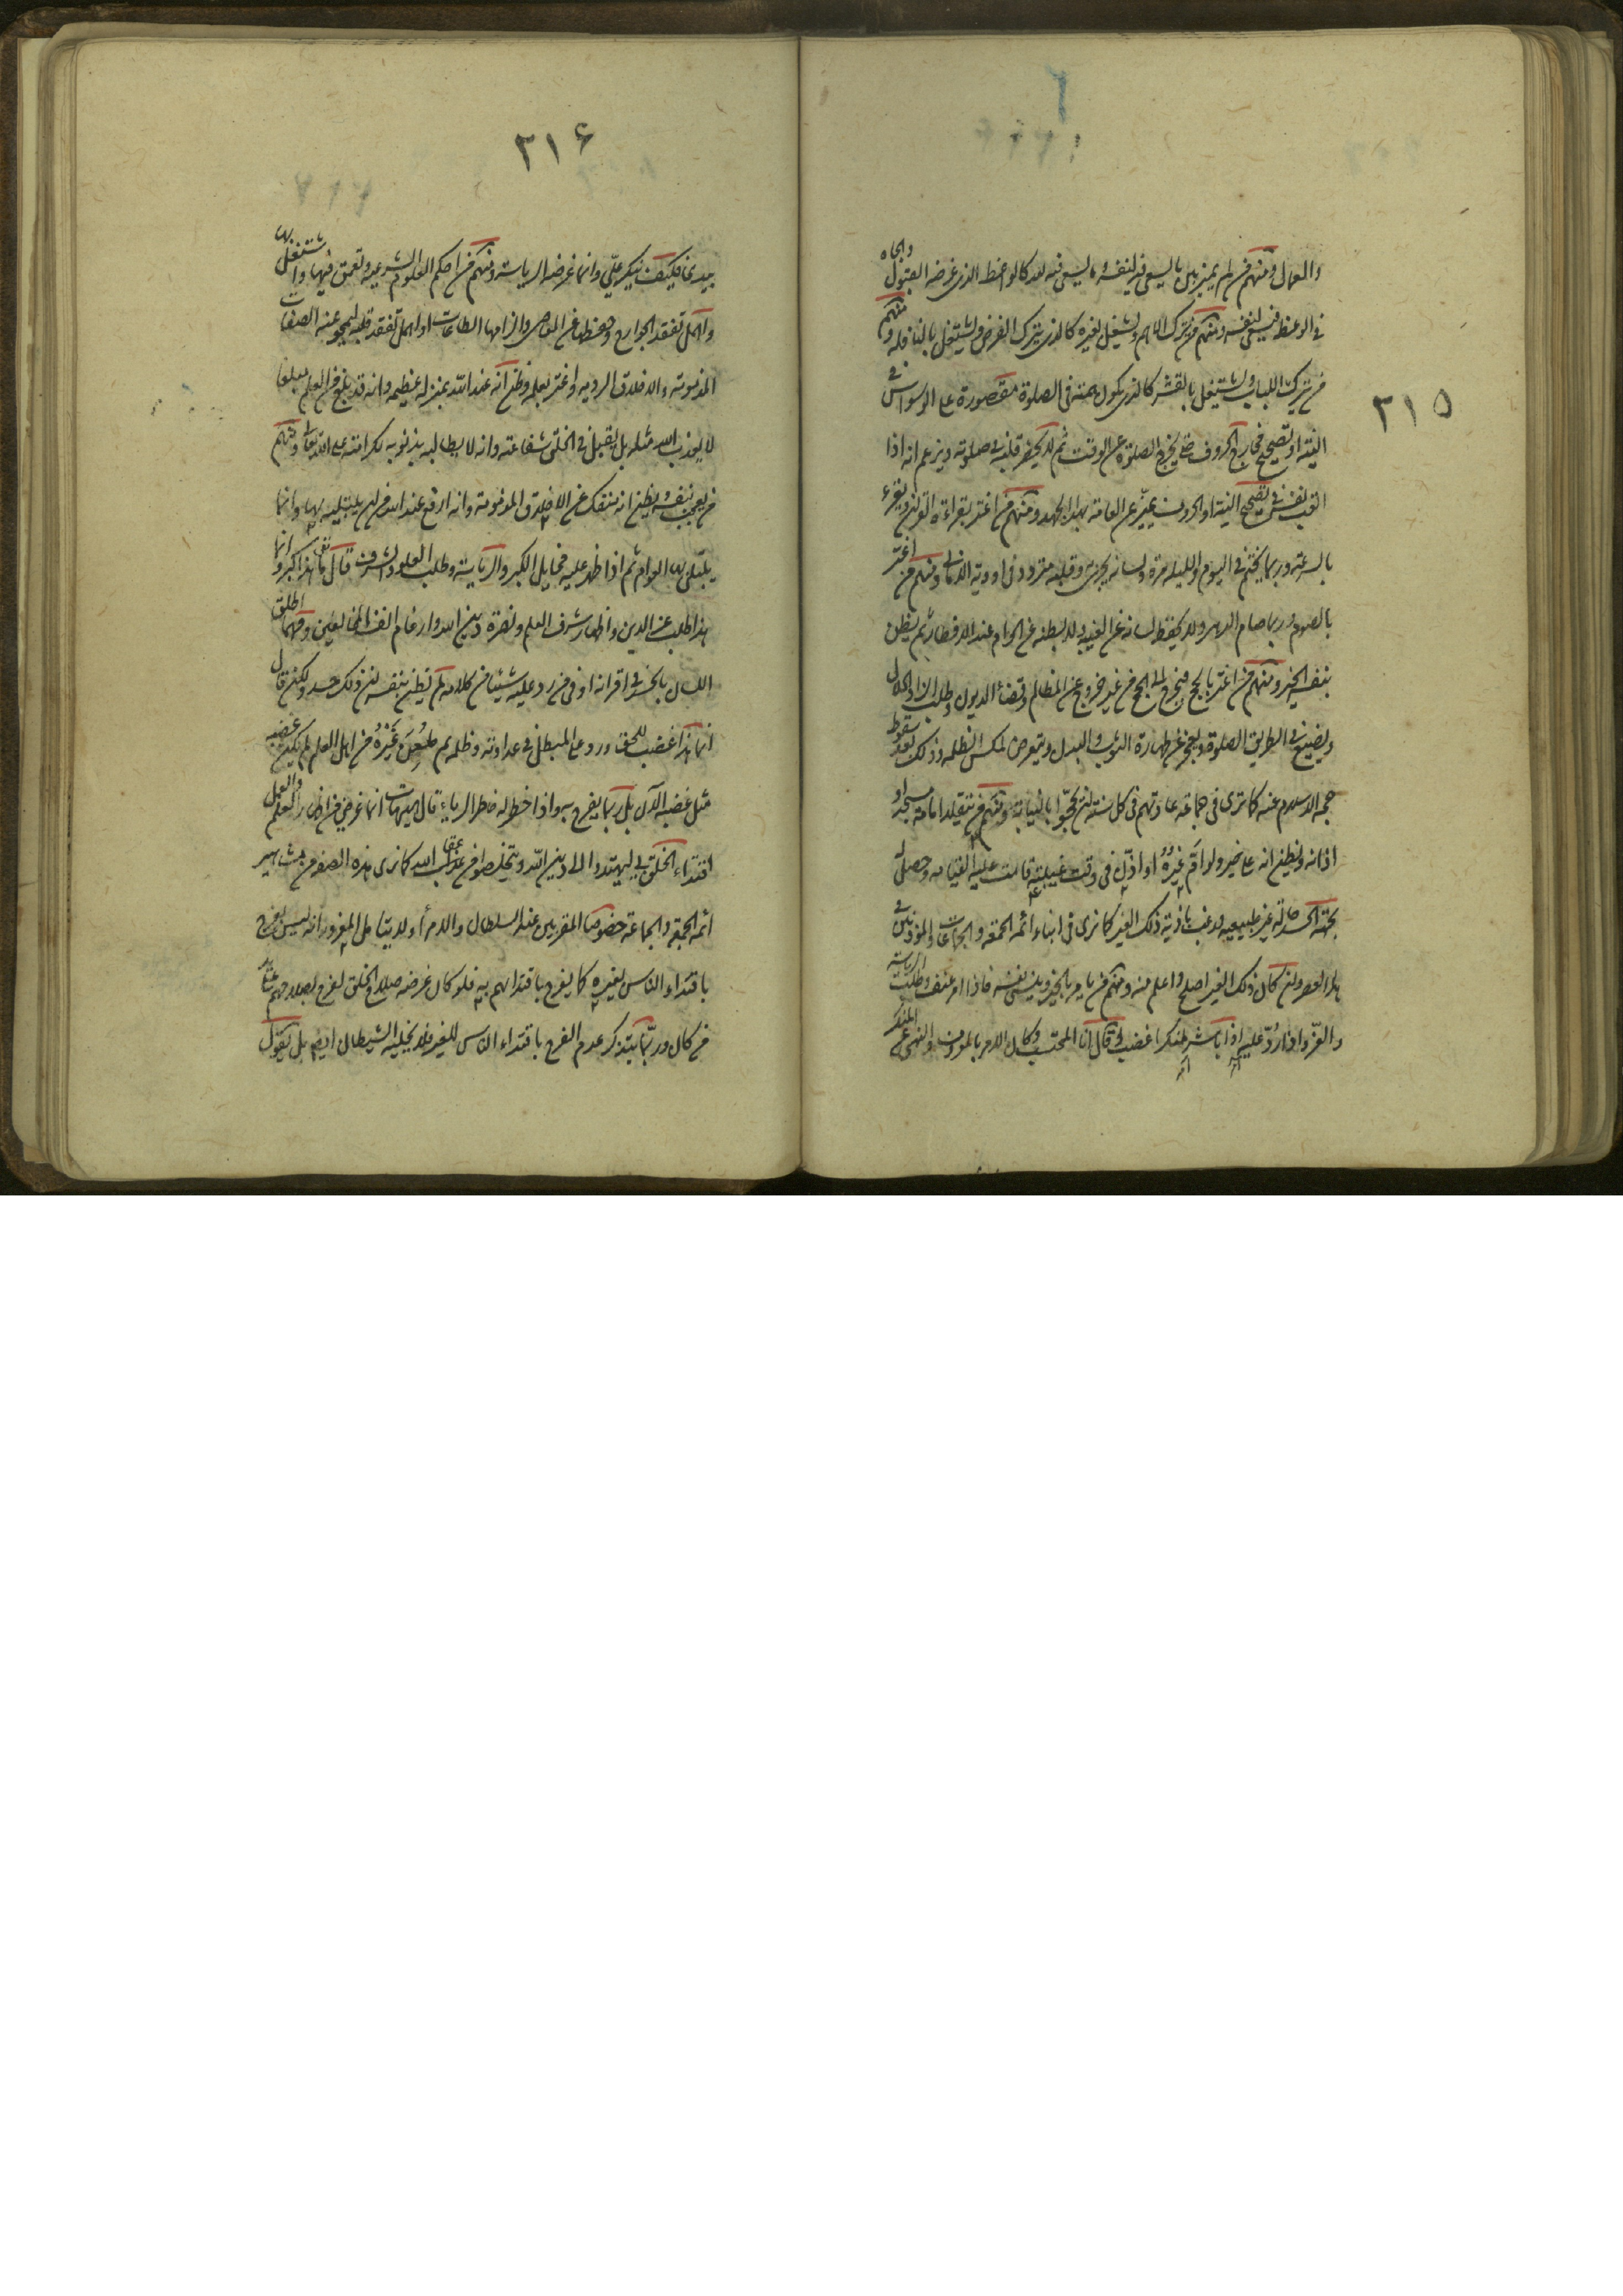 ٢١٥
والعمال ومنهم من لم يميز بين ما يسعى فيه لنفسه وما يسعى فيه لله كالواعظ الذي غرضه القبول والجاه
في الوعظ فيسعى لنفسه ومنهم من يترك الأهم ويشتغل بغيره كالذي يترك الفرض ويشتغل بالنافلة ومنهم
من يترك اللباب ويشتغل بالقشر كالذي يكون همته في الصلوة مقصورة على الوسواس في
النية او تصحيح مخارج الحروف حتى يخرج الصلوة عن الوقت ثم لا يحضر قلبه في صلوته ويزعم انه اذا
اتعب نفسه في تصحيح النية او الحروف يميّز عن العامة بهذا الجهد ومنهم من اغتر بقراءة القرآن ويقرء
بالسرعة وربما يختم في اليوم والليلة مرة ولسانه يجري وقلبه متردد في اودية الاماني ومنهم من اغترّ
بالصوم وربما صام الدهر ولا يحفظ لسانه عن الغيبة ولا بطنه عن الحرام عند الافطار ثم يظن
بنفسه الخير ومنهم من اغتر بالحج فيخرج الى الحج من غير خروج عن المظالم وقضاء الديون وطلب الزاد الحلال
ويضيع في الطريق الصلوة ويعجز عن طهارة الثوب والبدن ويتعرض لمكس الظلمة وذلك بعد سقوط
حجة الاسلام عنه كما ترى في جماعة عادتهم في كل سنة ان يحجّوا بالنيابة ومنهم من يتقلد امامة مسجد او
اذانه ويظن انه على خير ولو امّ غيره او اذّن في وقت غيبته قامت عليه القيامة وحصل له
بجهة الحسد حالة غير طبيعية ورغب باذية ذلك الغير كما ترى في ابناء ائمة الجمعة والجماعات والموذنين في
هذا العصر وان كان ذلك الغير اصلح واعلم منه ومنهم من يامر بالخير وينسى نفسه فاذا امر عنف وطلب الرياسة
والعزّ واذا ردّ عليه اذا باشر منكرا غضب وقال انا المحتسب وكان الامر بالمعروف والنهى عن المنكر
٢١۶
بيدى فكيف ينكر علىّ وانما غرضه الرياسة ومنهم من احكم العلوم الشرعية وتعمق فيها واشتغل بها
واهمل تفقد الجوارح وحفظها عن المعاصي والزامها الطاعات او اهمل تفقد قلبه ليمحو عنه الصفات
المذمومة والاخلاق الردية واغتر بعلمه وظن انه عند الله بمنزلة عظيمة وانه قد بلغ من العلم مبلغا
لا يعذب الله مثله بل يقبل في الخلق شفاعته وانه لا يطالبه بذنوبه لكرامته على الله تعالى ومنهم
من يعجب بنفسه ويظن انه منفك عن الاخلاق المذمومة وانه ارفع عند الله من ان يبتليه بها وانما
يبتلى بها العوام ثم اذا ظهر عليه مخايل الكبر والرياسة وطلب العلو والشرف قال ما هذا كبر وانما
هذا طلب عز الدين واظهار شرف العلم ونصرة دين الله وارغام انف المخالفين ومهما اطلق
اللسان بالحسد في اقرانه او في من رد عليه شيئا من كلامه لم يظن بنفسه ان ذلك حسد ولكن قال
انما هذا غضب للحق ورد على المبطل في عداوته وظلمه ثم طعن غيره من اهل العلم لم يكن غضبه
مثل غضبه الآن بل ربما يفرح به واذا خطر له خاطر الرياء قال هيهات انما غرضي من اظهار العلم والعمل
اقتداء الخلق بي ليهتدوا الى دين الله ويتخلصوا من عقاب الله كما نرى هذه الصفة من مشاهير
ائمة الجمعة والجماعة خصوصا المقربين عند السلطان والامراء ولا يتامل المغرور انه ليس يفرح
باقتداء الناس بغيره كما يفرح باقتدائهم به فلو كان غرضه صلاح الخلق لفرح بصلاحهم على يد
من كان وربّما يتذكر عدم الفرح باقتداء الناس للغير فلا يخليه الشيطان ايضا بل يقول